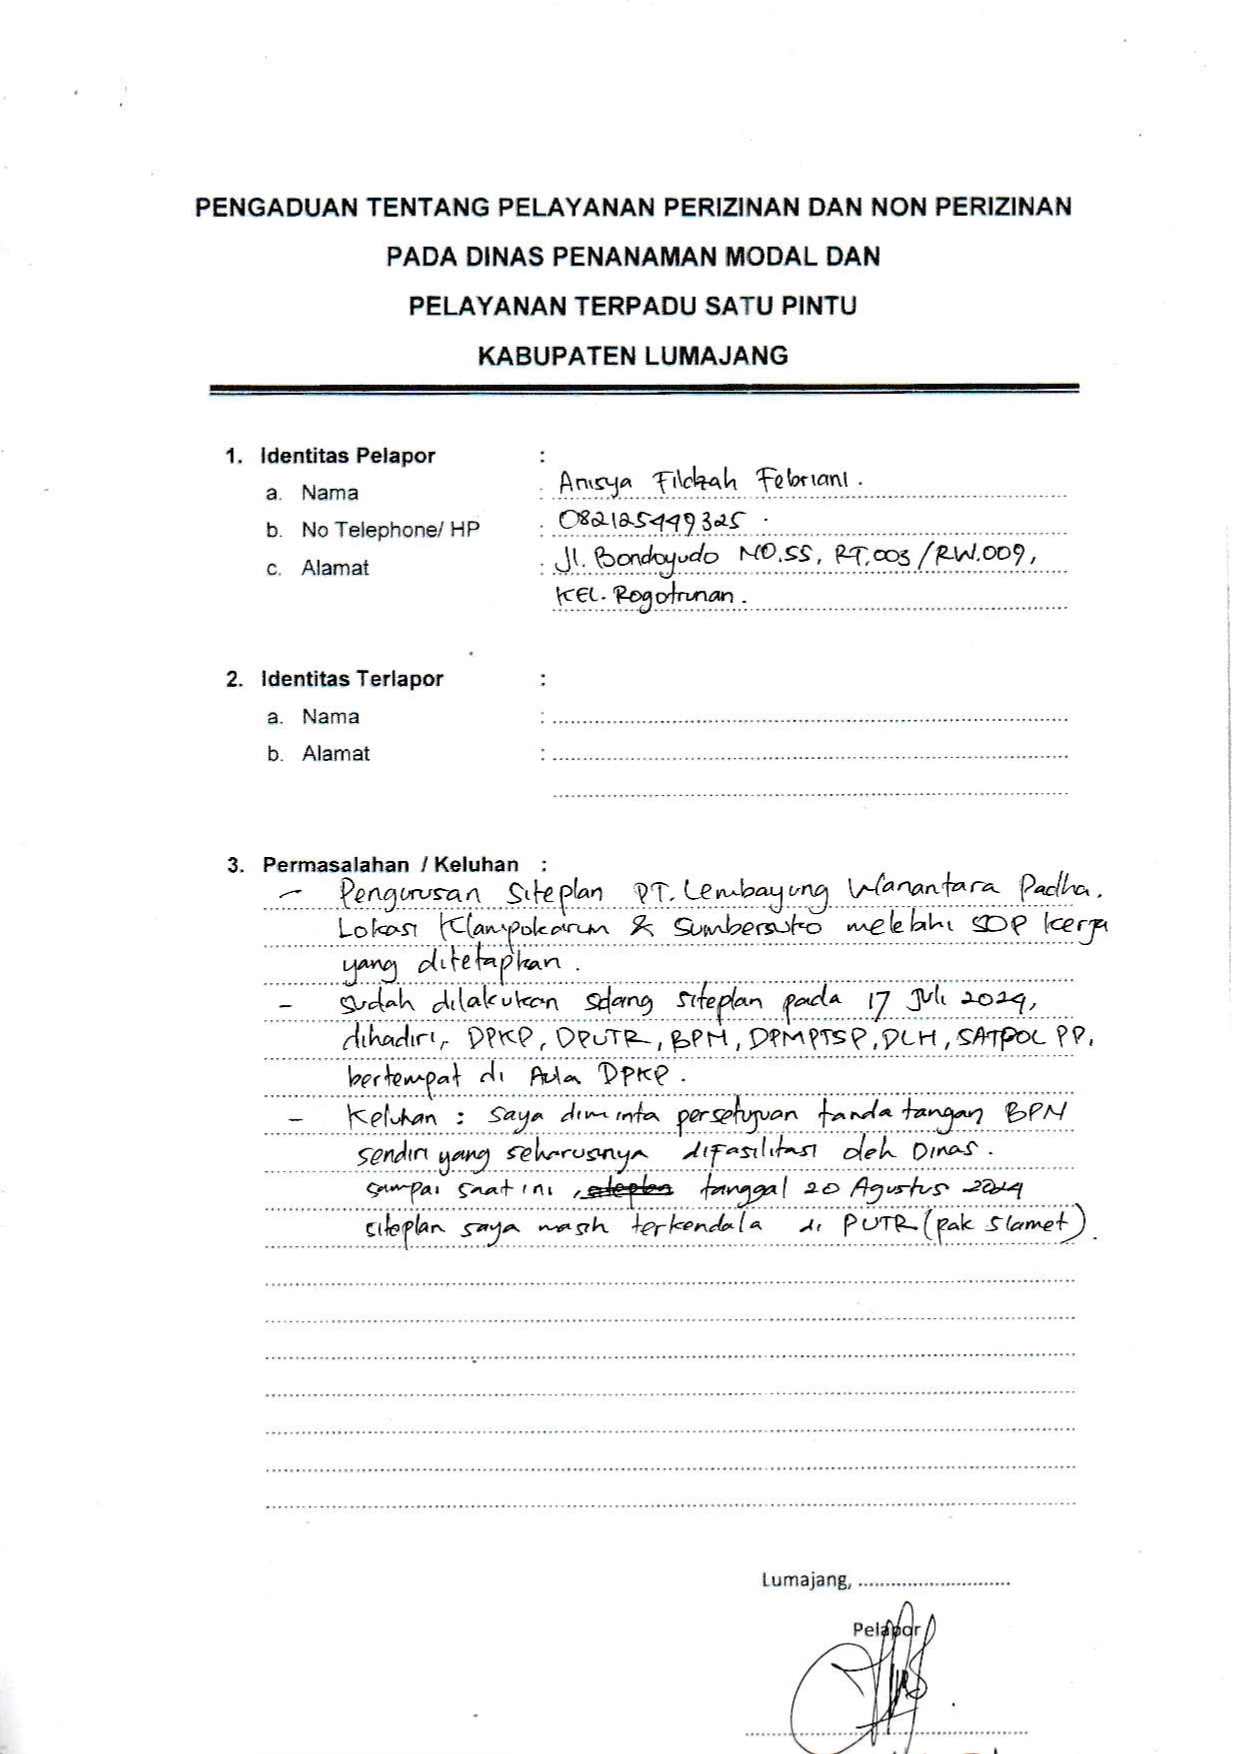 PENGADUAN TENTANG PELAYANAN PERIZINAN DAN NON PERIZINAN
PADA DINAS PENANAMAN MODAL DAN
PELAYANAN TERPADU SATU PINTU
KABUPATEN LUMAJANG
1. Identitas Pelapor :
a. Nama : Anisya Fildzah Febriani.
b. No Telephone/ HP : 082125449325.
c. Alamat : Jl. Bondoyudo NO.55, RT.003/RW.009,
KEL. Rogotrunan.
2. Identitas Terlapor :
a. Nama :
b. Alamat :
3. Permasalahan / Keluhan :
- Pengurusan Siteplan PT. Lembayung Wanantara Padha.
Lokasi Klampokarum & Sumbersuko melebihi SOP kerja
yang ditetapkan.
- sudah dilakukan sidang siteplan pada 17 Juli 2024,
dihadiri, DPKP, DPUTR, BPN, DPMPTSP, DLH, SATPOL PP,
bertempat di Aula DPKP.
- Keluhan : saya diminta persetujuan tanda tangan BPN
sendiri yang seharusnya difasilitasi oleh Dinas.
sampai saat ini, siteplan tanggal 20 Agustus 2024
siteplan saya masih terkendala di PUTR (pak Slamet).
Lumajang,
Pelapor